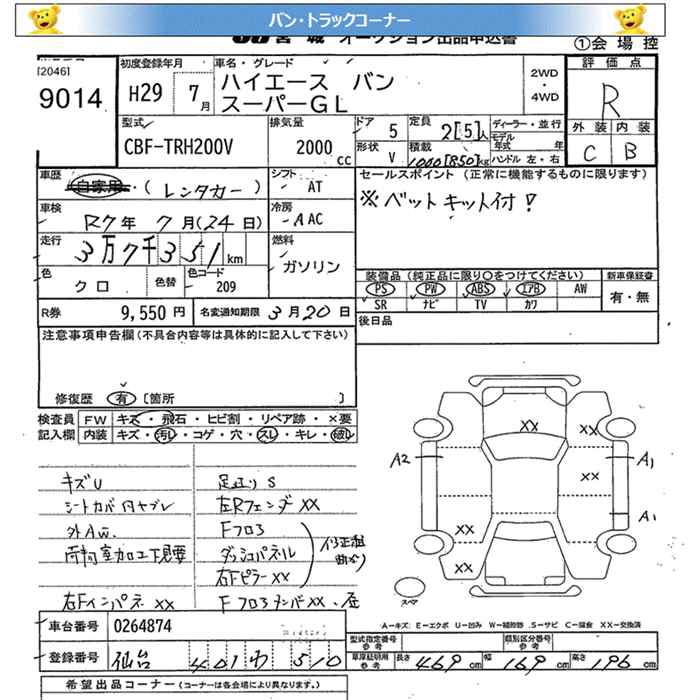 バン・トラックコーナー
宮城 オークション出品申込書 ①会場控
[2046]
9014
初度登録年月 H29 7月
車名・グレード ハイエース バン
スーパーGL
2WD
4WD
評価点
R
型式 CBF-TRH200V
排気量 2000cc
ドア 5
形状 V
定員 2[5]人
積載 1000[850]kg
ディーラー・並行
モデル年式 年式
ハンドル 左・右
外装 内装
C B
車歴 自家用・(レンタカー)
シフト AT
車検 R7年 7月(24日)
冷房 AAC
走行 3万7千351km
燃料 ガソリン
色 クロ
色替
色コード 209
セールスポイント (正常に機能するものに限ります)
※ベットキット付!
装備品 (純正品に限り○をつけてください)
PS PW ABS エアB AW
SR ナビ TV カワ
新車保証書
有・無
R券 9,550円
名変通知期限 3月20日
後日品
注意事項申告欄(不具合内容等は具体的に記入して下さい)
修復歴 有 [箇所 ]
検査員 FW キズ・飛石・ヒビ割・リペア跡・×要
記入欄 内装 キズ・汚レ・コゲ・穴・スレ・キレ・破レ
キズU
シートカバー付ヤブレ
外AW.
荷物室加工下見要
右Fインパネ XX
足廻りS
左Rフェンダ XX
Fフロア
ダッシュパネル
右Fピラー XX
Fフロアメンバ XX.
XX XX
A2 A1
XX
A1
XX
XX
スペア
A−キズ E−エクボ U−凹み W−補修跡 S−サビ C−腐食 XX−交換済
車台番号 0264874
登録番号 仙台 401 わ 510
型式指定番号 参考
類別区分番号 参考
車庫証明用 参考 長さ 469cm 幅 169cm 高さ 196cm
希望出品コーナー(各会場により異なります。)